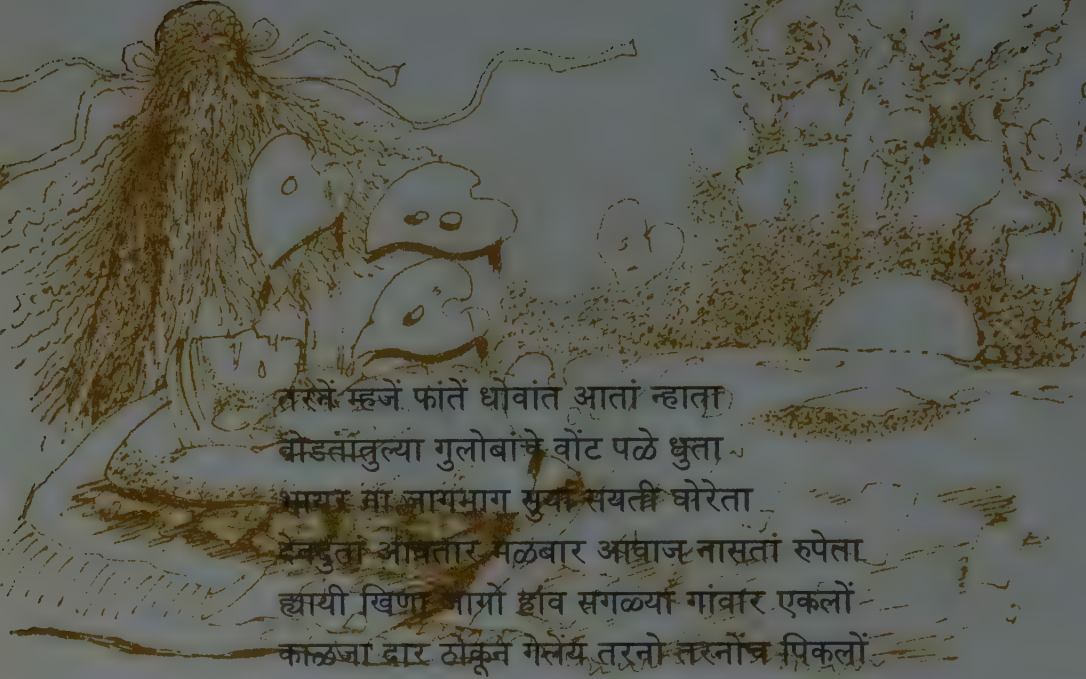 तरनें म्हजें फांतें धोवांत आतां न्हाता
वोडतांतुल्या गुलोबांचे वोंट पळे धुता
भायर ना जागमाग सुर्या संयती घोरेता
देवदुतां आवतार मळबार आवाज नासतां रुपेता
ह्याथी खिणा जागो हांव सगळ्या गांवार एकलों
काळजा दार ठोकून गेलेंय तरनो तरनोंच पिकलों